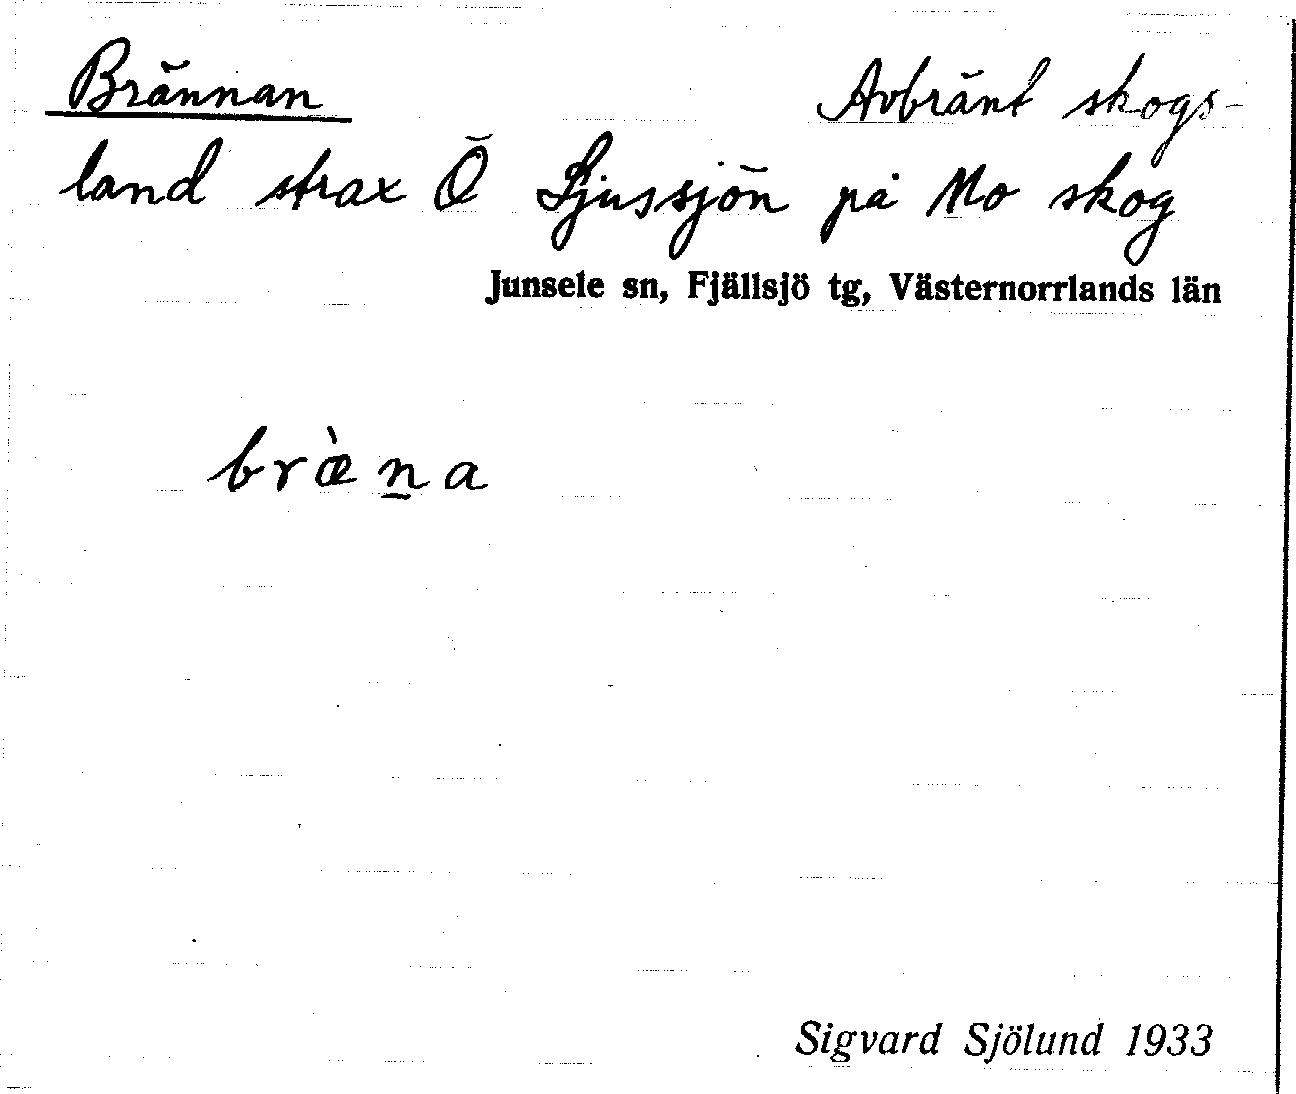 Brännan Avbränt skogs-
land strax Ö Ljussjön på Mo skog
Junsele sn, Fjällsjö tg, Västernorrlands län
bræ̀n̲a
Sigvard Sjölund 1933